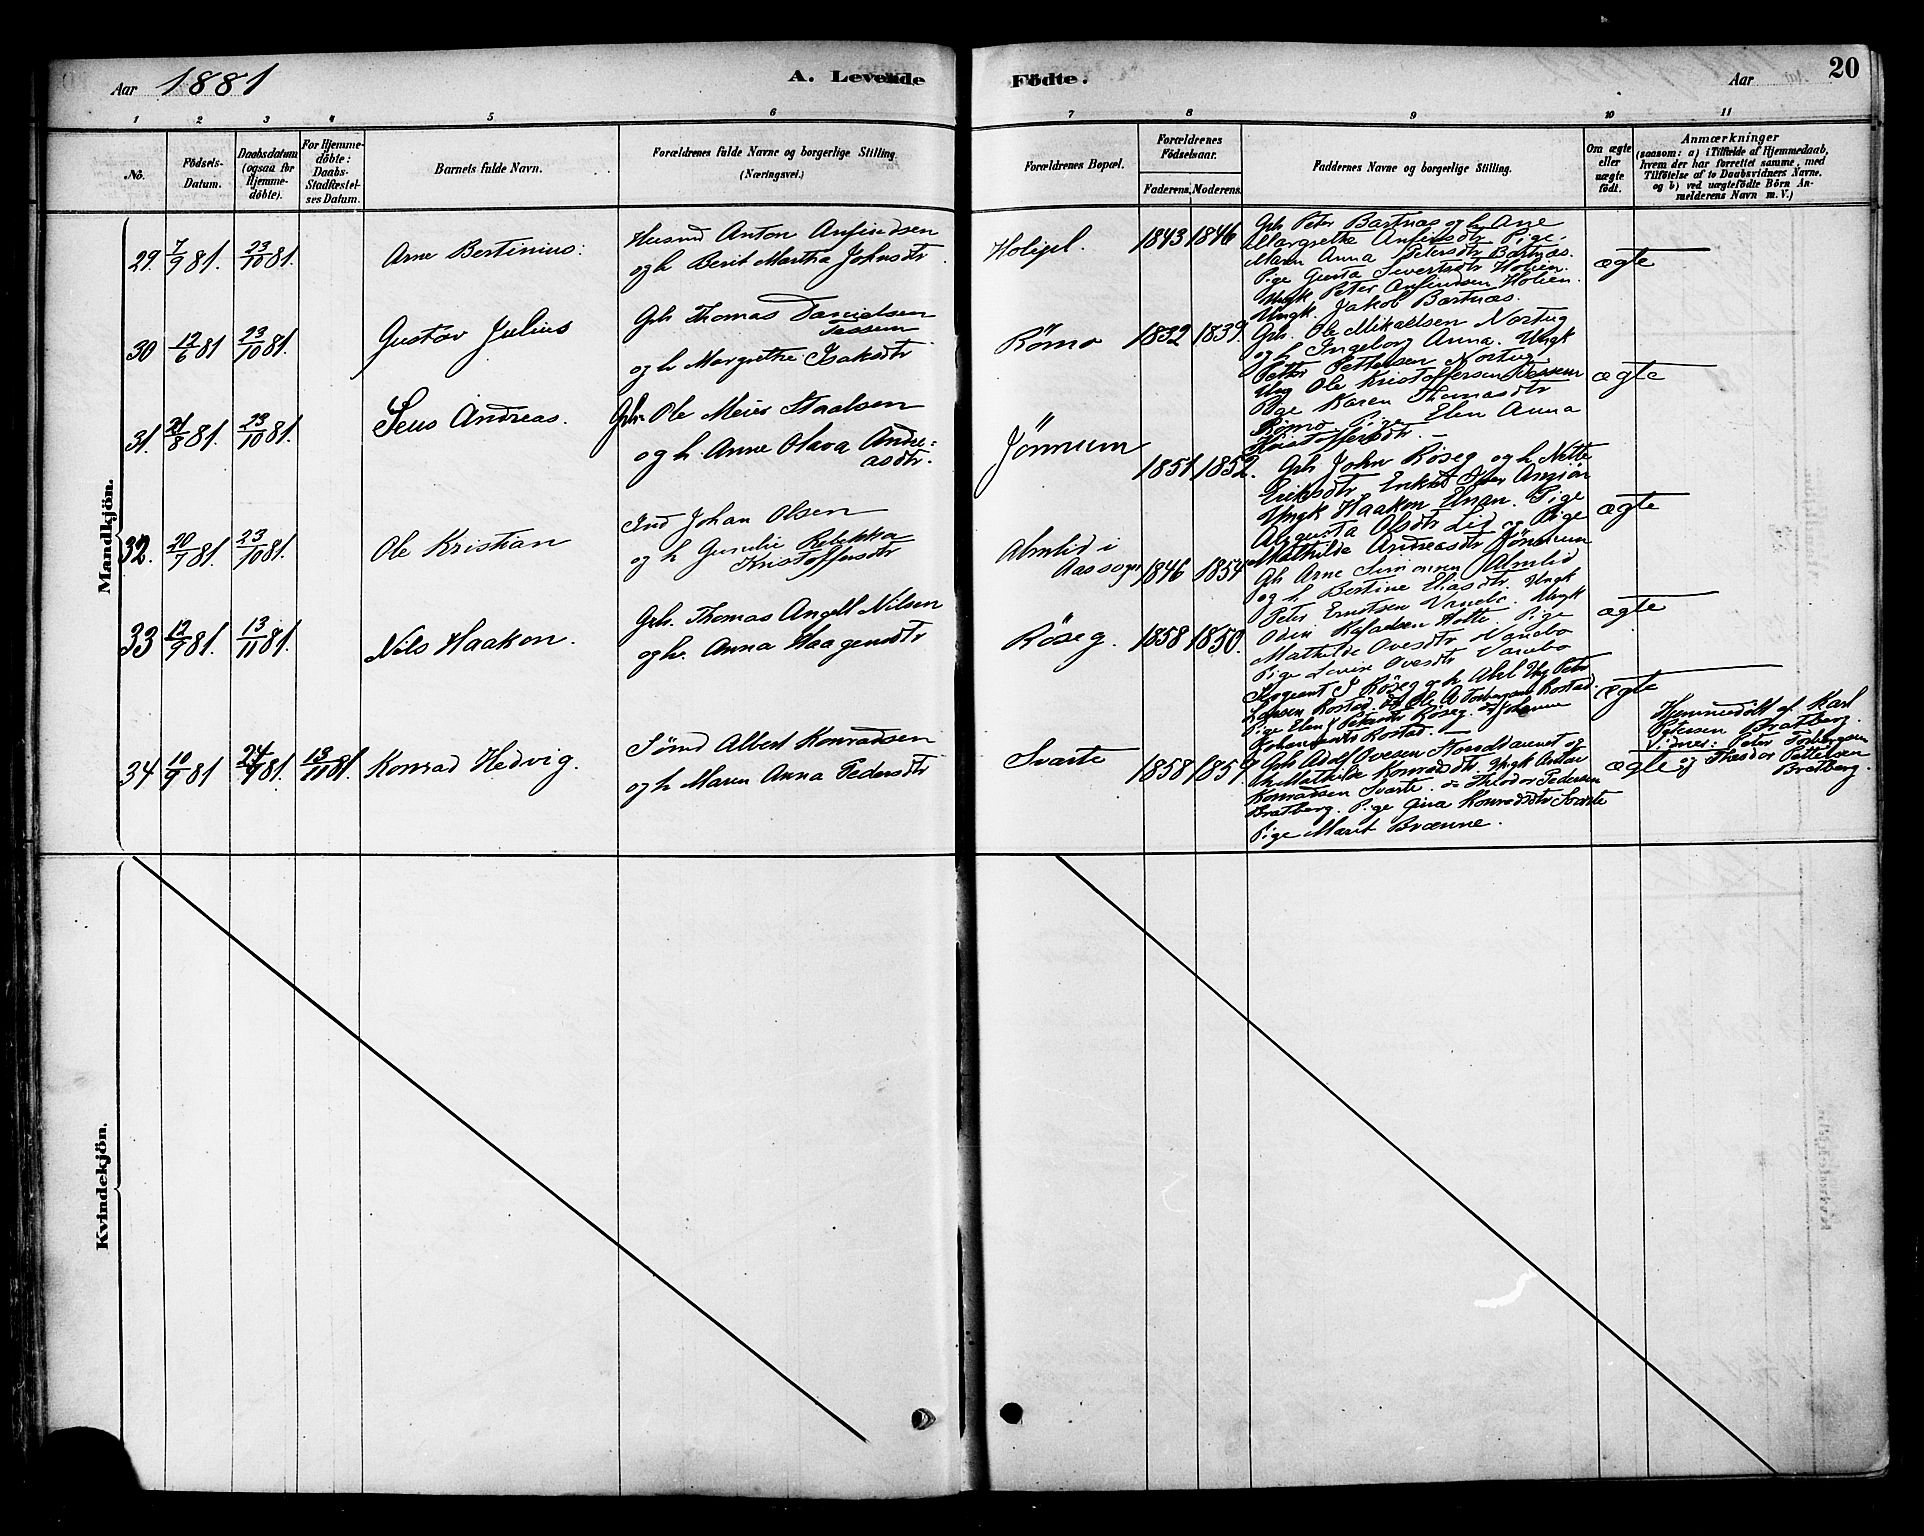 Aar 1881
A. Levende
Födte.
Aar
20
1
2
3
4
5
6
7
8
9
10
11
No.
Födsels-
Datum.
Daabsdatum
(ogsaa for
Hjemme-
döbte).
For Hjemme-
döbte:
Daabs-
Stadfæstel-
ses Datum.
Barnets fulde Navn.
Forældrenes fulde Navne og borgerlige Stilling
(Næringsvei.)
Forældrenes Bopæl.
Forældrenes
Födselsaar.
Faderens,
Moderens.
Faddernes Navne og borgerlige Stilling.
Om ægte
eller
uægte
födt.
Anmærkninger
(saasom: a) i Tilfælde af Hjemmedaab,
hvem der har forrettet samme, med
Tilföielse af to Daabsvidners Navne.
og b) ved uægtefödte Börn An-
melderens Navn m. V.)
Mandkjön.
29. 7/9 81. 23/10 81.
Arne Bertinius:
Husmd Anton Anfindsen
og h Berit Martha Johnsdtr
Holigel.
1843 1846
Gb Peter Bartnæs og h Ane
Margrethe Anfinsdtr Pige
Maren Anna Petersdtr Bartnæs.
Pige Gusta Sivertsdtr Holien.
Ungk Peter Anfindsen Holien
Ungk Jakob Bartnæs.
ægte
30 12/6 81 23/10 81.
Gustav Julius
Gb Thomas Danielsen
Tessem
og h Margrethe Isaksdtr
Römo
1832 1839.
Gb. Ole Mikaelsen Nortug
og h Ingeborg Anna. Ungk
Petter Pettersen Nortug.
Ung Ole Kristoffersen Tessem
Pige Karen Thomasdtr
Römo. Pige Elen Anna
Kristoffersdtr. —
ægte
31. 21/8 81. 23/10 81.
Jens Andreas.
Gb. Ole Meier Staalsen
og h. Anne Olava Andre=
asdtr.
Jörnum
1851 1852.
Gb John Röseg og h Nette
Eriksdtr Enkem Iver
Ungk Haakon Elnan. Pige
Augusta Olsdtr Lid og Pige
Mathilde Andreasdtr Jörnum
ægte
32. 20/7 81. 23/10 81.
Ole Kristian
Ind Johan Olsen
og h Gunelie Rebekka
Kristoffersdtr
Almlid i
Aas sogn
1846 1854
Gb Arne Simonsen Almlid
og h Bertine Eliasdtr. Ungk
Peter Erntsen Vanebo. Ungk
Oden Rafaelsen Holte. Pige
Mathilde Ovesdtr Vanebo
Pige Lovise Ovesdtr Vanebo
ægte
33 12/9 81. 13/11 81.
Nils Haakon.
Gb. Thomas Angell Nilsen
og h. Anna Haagensdtr
Röseg.
1858 1850.
Sergeant J Röseg og h Ung Peter
Larsen Rostad Rostad.
Pige Elen Petersdtr Röseg. Johanna
Johansdtr Rostad. —
ægte
34 10/9 81 24/9 81. 13/11 81.
Konrad Hedvig.
Sönd Albert Konradsen
og h Maren Anna Pedersdtr
Svarte
1858 1859
Gb Adolf Ovesen og
h Mathilde Konradsdtr Ungk Anton
Konradsen Svarte. do Theodor Pedersen
Bratberg. Pige Gina Konradsdtr Svarte
Pige Marit Brænne.
ægte
Hjemmedöbt af Karl
Petersen Bratberg.
Vidner: Peter Torbergsen
og Theodor Pettersen
Bratberg.
Kvindekjön.